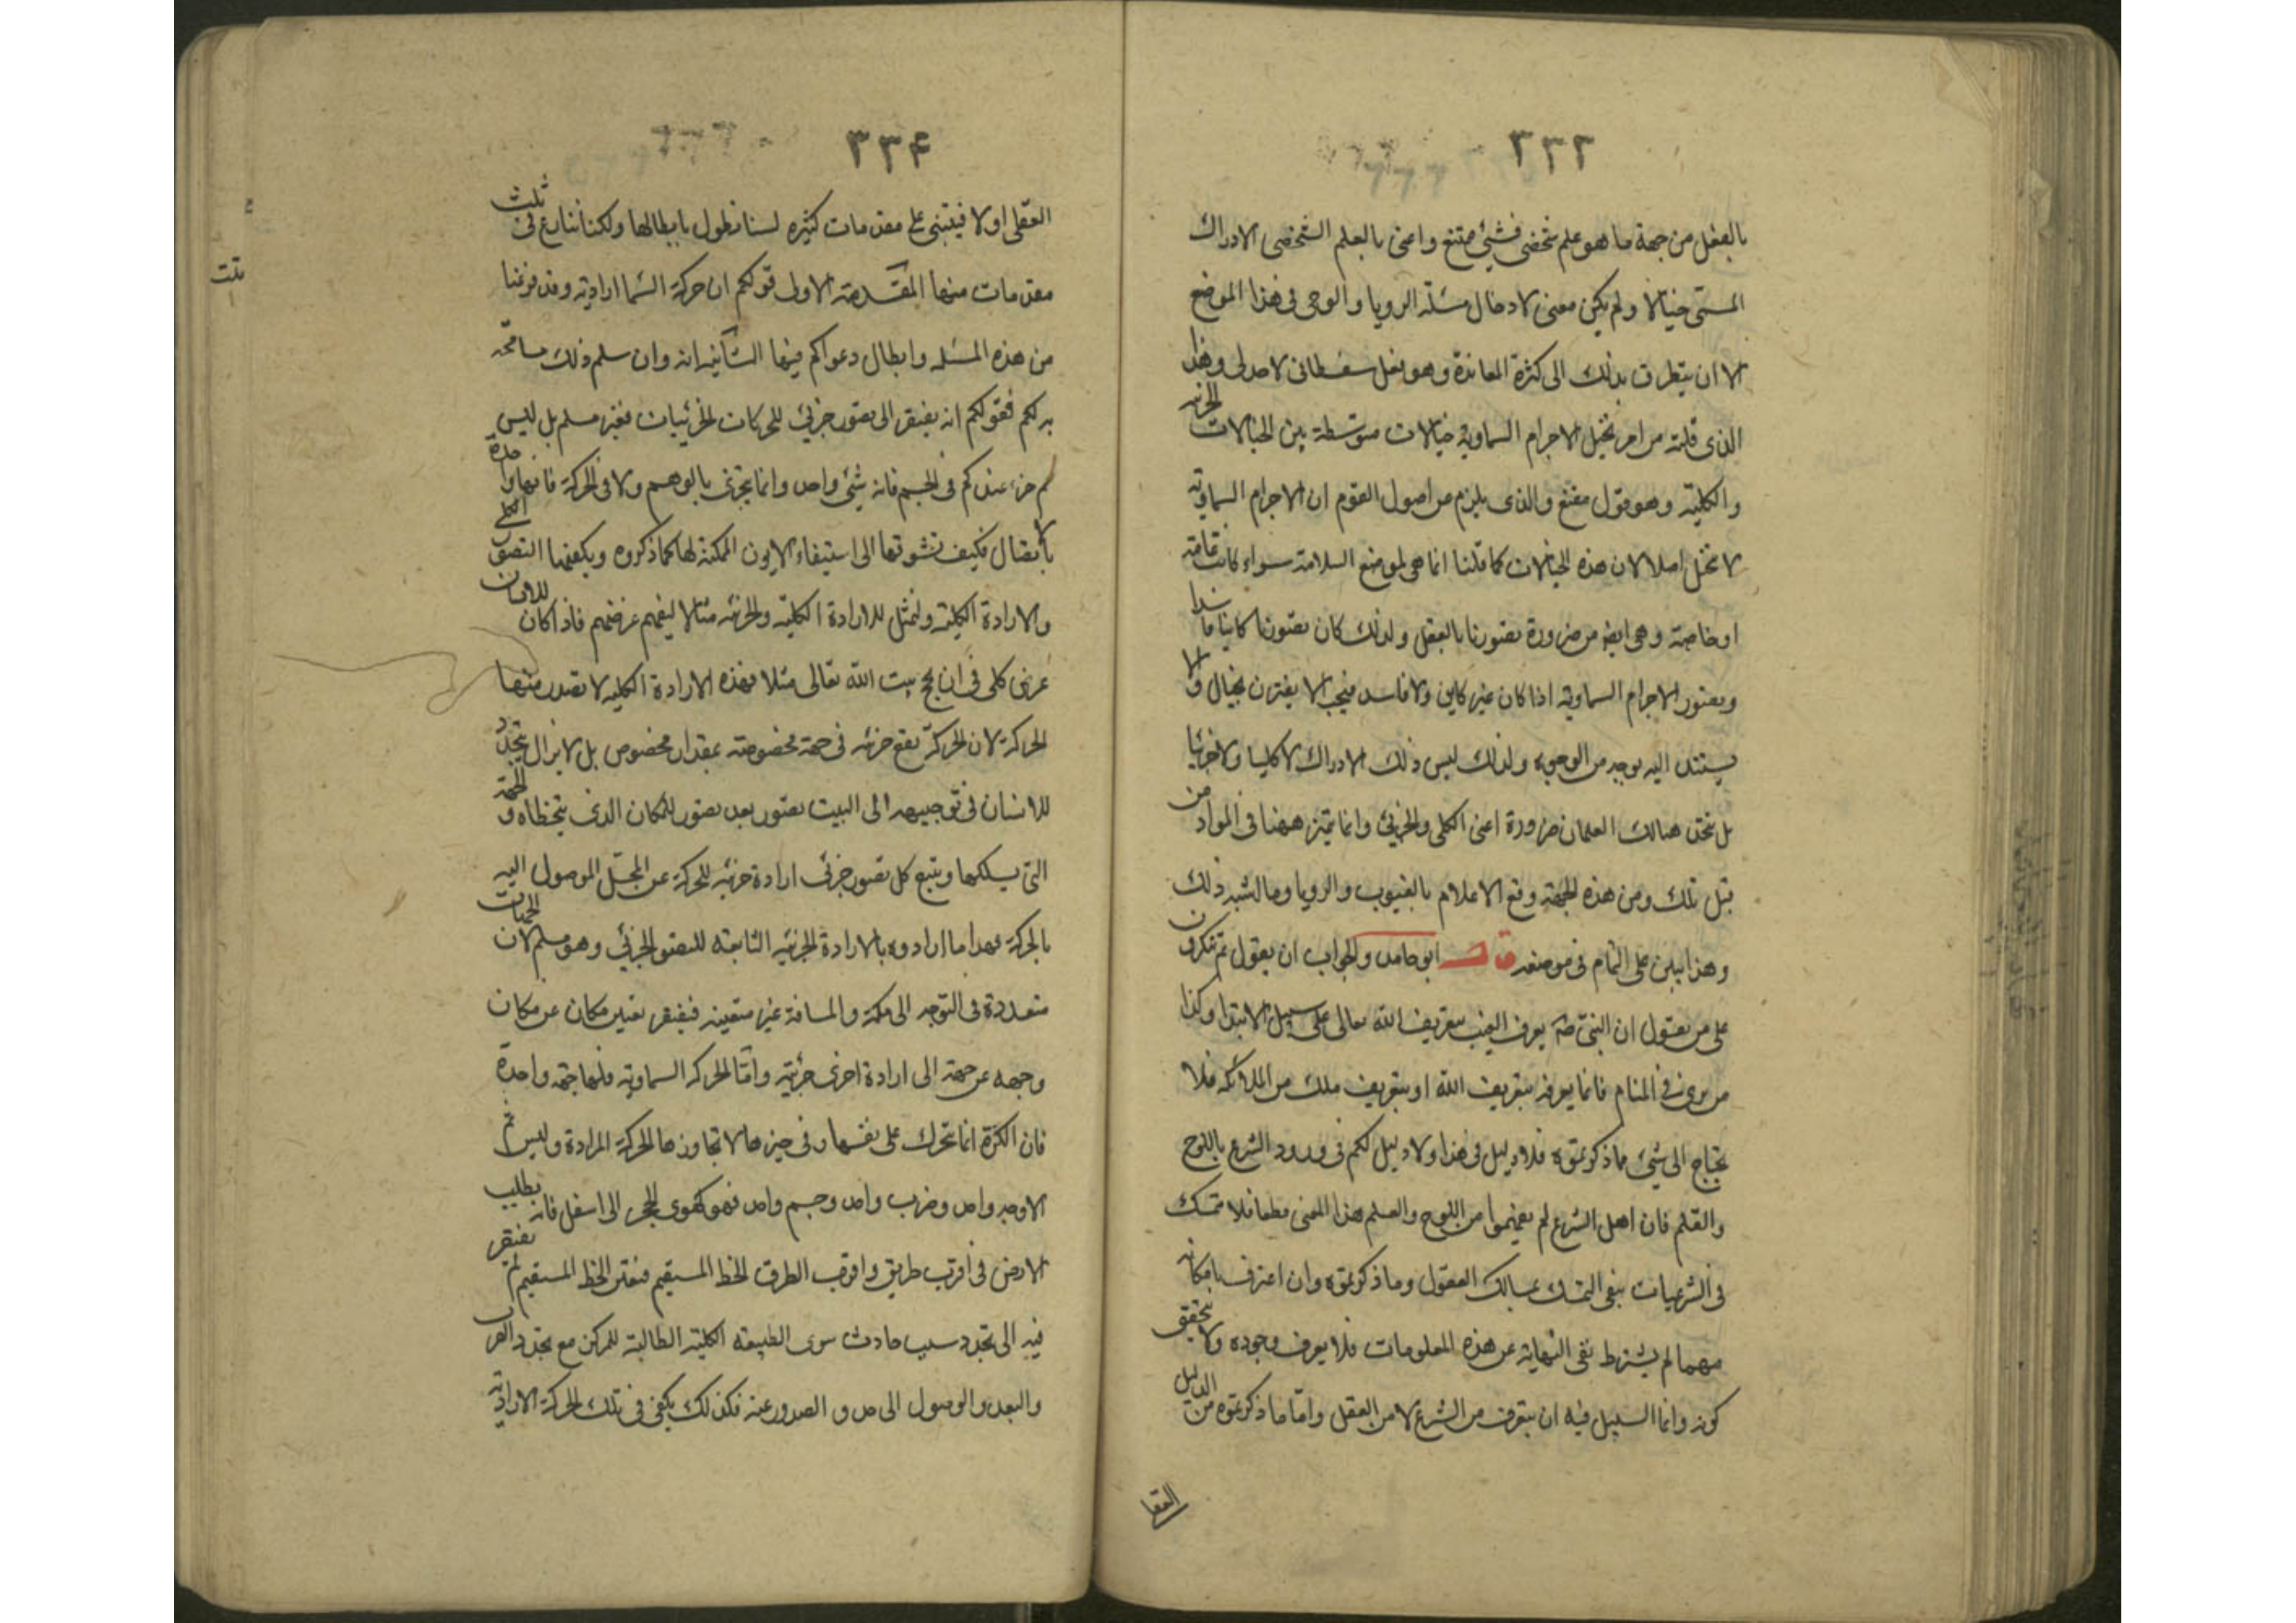 ٣٣٣
بالعقل من جهة ما هو علم شخصى فشئ ممتنع واعنى بالعلم الشخصى الادراك
المسمى خيالا ولم يكن معنى لادخال مسئلة الرويا والوحى فى هذا الموضع
الا ان يتطرق بذلك الى كثرة المعاندة وهو فعل سفسطانى لا جدلى وهذا
الذى قلته من امر تخيل الاجرام السماوية خيالات متوسطة بين الخيالات الجزئية
والكلية وهو قول مقنع والذى يلزم من اصول القوم ان الاجرام السماوية
لا تتخيل اصلا لان هذه الخيالات كما قلنا انما هى لموضع السلامة سواء كانت عامة
او خاصة وهى ايضا من ضرورة تصورنا بالعقل ولذلك كان تصورنا كاينا فاسدا
وتصور الاجرام السماوية اذا كان غير كاين ولا فاسد فيجب الا يقترن بخيال والا
يستند اليه بوجه من الوجوه ولذلك ليس ذلك الادراك لا كليا ولا جزئيا
بل يتحد هنالك العلمان ضرورة اعنى الكلى والجزئى وانما يتميز ههنا فى المواد من
قبل تلك ومن هذه الجهة وقع الاعلام بالغيوب والرويا وما اشبه ذلك
وهذا يبين على التمام فى موضعه قال ابو حامد والجواب ان يقول بم تنكرون
على من يقول ان النبى صم يعرف الغيب بتعريف الله تعالى على سبيل الابتدا وكذا
من يرى فى المنام فانما يعرفه بتعريف الله او بتعريف ملك من الملائكه فلا
يحتاج الى شئ مما ذكرتموه فلا دليل فى هذا ولا دليل لكم فى ورود الشرع باللوح
والقلم فان اهل الشرع لم يفهموا من اللوح والقلم هذا المعنى قطعا فلا متمسك
فى الشرعيات يبقى التمسك بمسالك العقول وما ذكرتموه وان اعترف بامكانه
مهما لم يشترط نفى النهاية عن هذه المعلومات فلا يعرف وجوده ولا يتحقق
كونه وانما السبيل فيه ان يتعرف من الشرع لا من العقل واما ما ذكرتموه من الدليل
العقل
٣٣۴
العقلى اولا فيبتنى على مقدمات كثيره لسنا نطول بابطالها ولكنا ننازع فى ثلث
مقدمات منها المقدمة الاولى قولكم ان حركة السما ارادية وقد فرغنا
من هذه المسئله وابطال دعواكم فيها الثانية انه وان سلم ذلك مسامحة
به لكم فقولكم انه يفتقر الى تصور جزئى للحركات الجزئيات فغير مسلم بل ليس
ثم جزء عندكم فى الجسم فانه شئ واحد وانما يتجزى بالوهم ولا فى الحركة فانها واحدة
بالاتصال فيكفى تشوقها الى استيفاء الايون الممكنة لها كما ذكروه ويكفيها التصور الكلى
والارادة الكلية ولنمثل للارادة الكلية والجزئية مثالا ليفهم غرضهم فاذا كان للانسان
غرض كلى فى ان يحج بيت الله تعالى مثلا فهذه الارادة الكليه لا تصدر منها
الحركة لان الحركة تقع جزئيه فى جهة مخصوصة بمقدار مخصوص بل لا يزال يتجدد
للانسان فى توجيهه الى البيت تصور بعد تصور للمكان الذى يتخطاه والجهة
التى يسلكها ويتبع كل تصور جزئى ارادة جزئيه للحركة عن المحل الموصول اليه
بالحركة فهذا ما ارادوه بالارادة الجزئيه التابعة للتصور الجزئى وهو مسلم لان الجهات
متعددة فى التوجه الى مكة والمسافة غير متعينه فيفتقر تعين مكان عن مكان
وجهه عن جهة الى ارادة اخرى جزئية واما الحركه السماوية فلها جهة واحدة
فان الكرة انما تتحرك على نفسها وفى حيزها لا تجاوزها الحركة المرادة وليس ثم
الا وجه واحد وضرب واحد وجسم واحد فهو كهوى الحجر الى اسفل فانه يطلب
الارض فى اقرب طريق واقرب الطرق الخط المستقيم فتعين الخط المستقيم فلم يفتقر
فيه الى تجدد سبب حادث سوى الطبيعة الكلية الطالبة للمركز مع تجدد القرب
والبعد والوصول الى حد والصدور عنه فكذلك يكفى فى تلك الحركة الارادية
ثلث